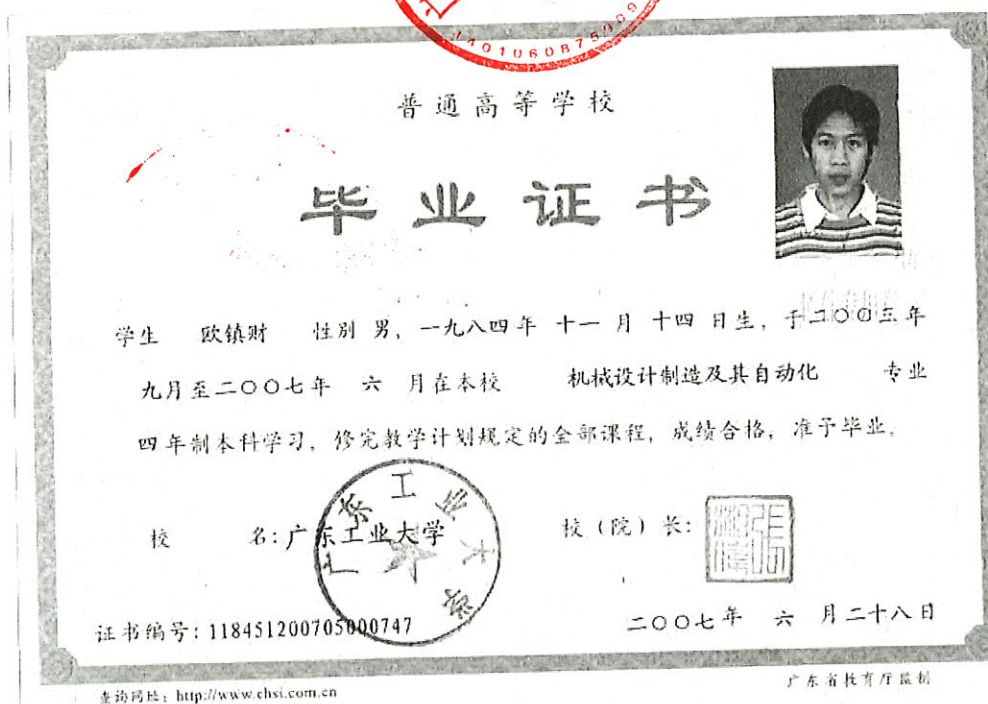 4401060875909
普通高等学校
毕业证书
学生 欧镇财 性别 男，一九八四年 十一 月 十四 日生，于二〇〇三年
九月至二〇〇七年 六 月在本校 机械设计制造及其自动化 专业
四年制本科学习，修完教学计划规定的全部课程，成绩合格，准予毕业。
校 名：广东工业大学
广东工业大学
校（院）长：
证书编号：118451200705000747
二〇〇七年 六 月二十八日
查询网址：http://www.chsi.com.cn
广东省教育厅监制